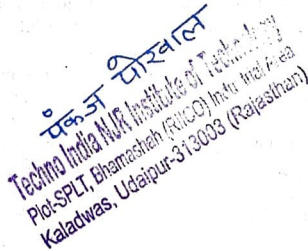 पंकज पोरवाल
Techno India NJR Institute of Technology
Plot-SPLT, Bhamashah (RIICO) Industrial Area
Kaladwas, Udaipur-313003 (Rajasthan)